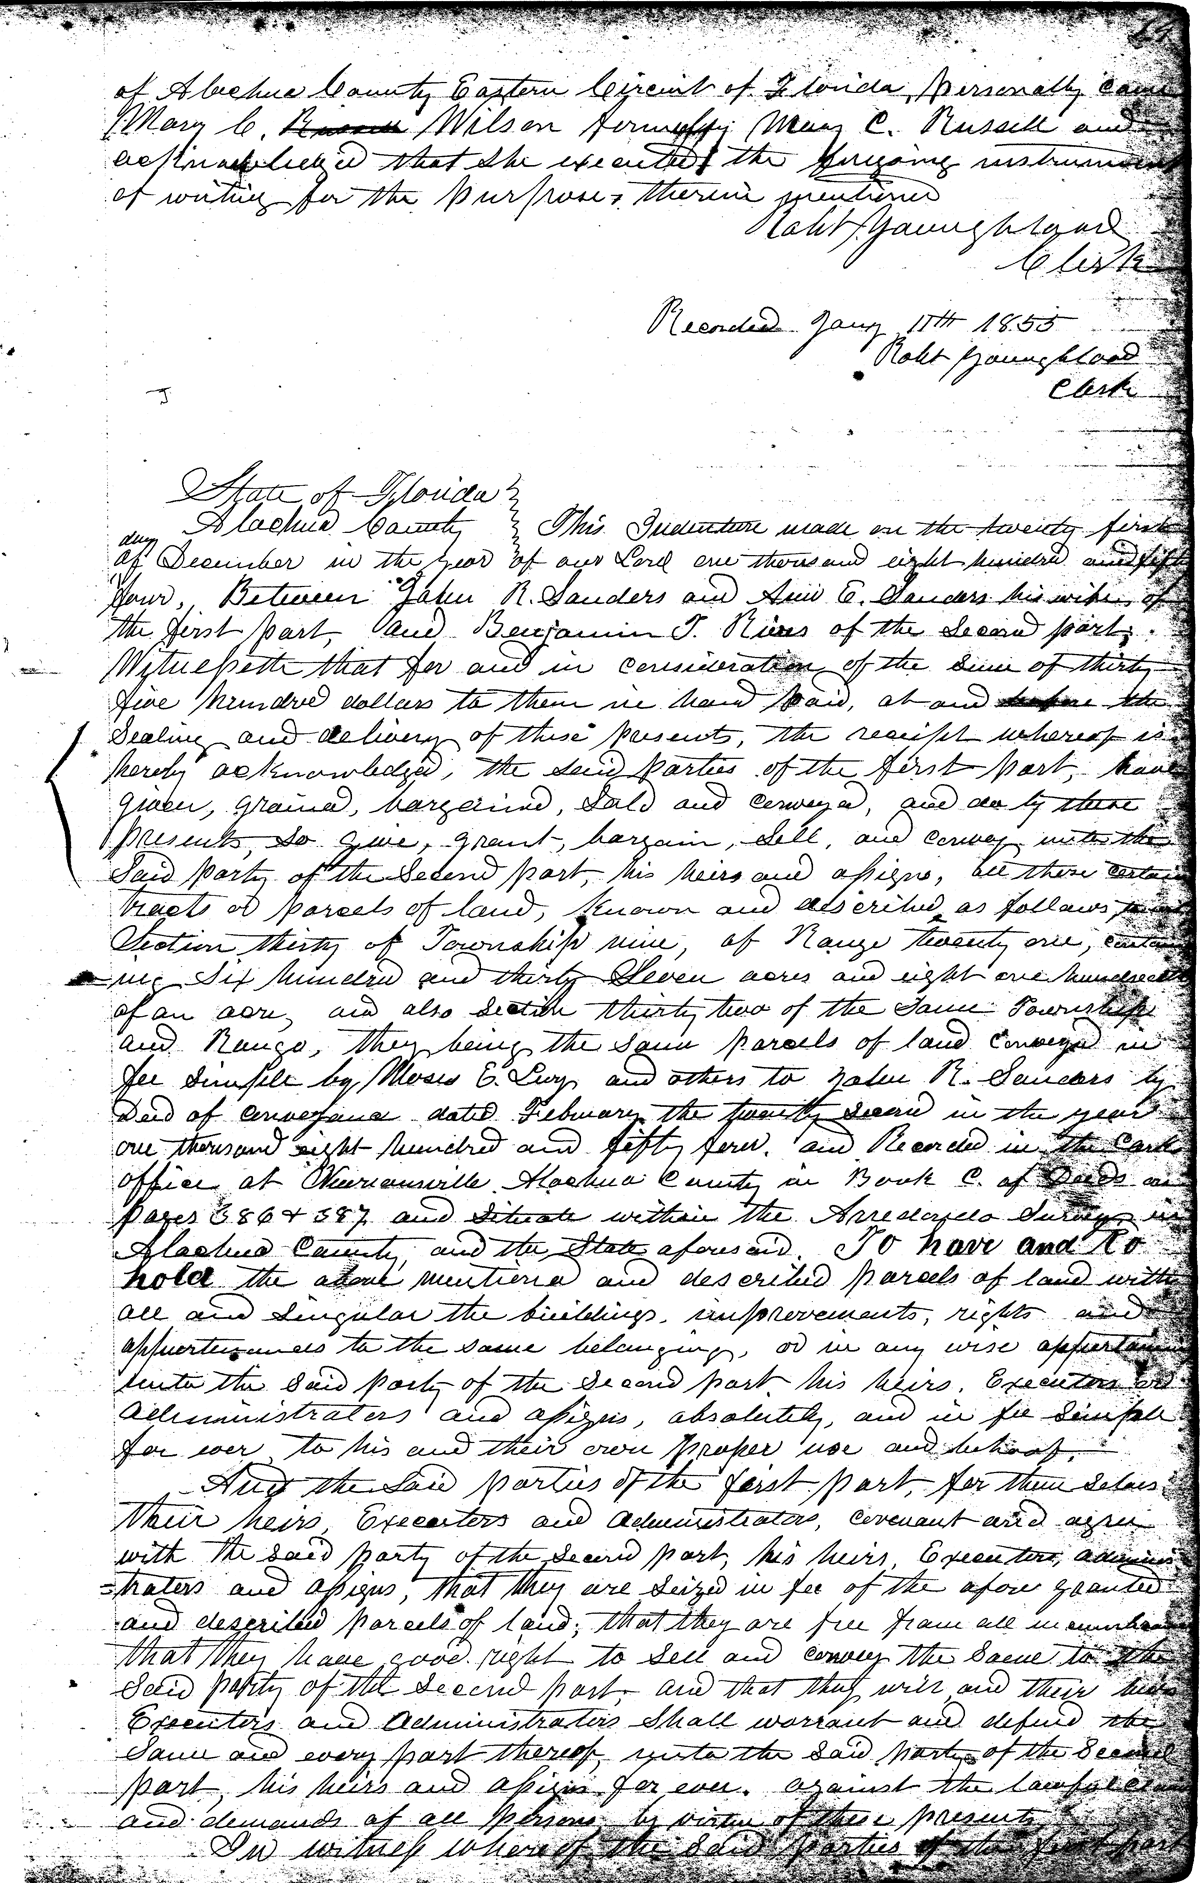 of Alachua County Eastern Circuit of Florida, personally came
Mary C. Russell Wilson formerly Mary C. Russell and
acknowledged that she executed the forgoing instrument
of writing for the purposes therein mentioned
Robt Youngblood
Clerk
Recorded Jany 11th 1855
Robt Youngblood
Clerk
State of Florida
Alachua County This Indenture made on the twenty first
day
of December in the year of our Lord one thousand eight hundred and fifty
four, Between John R. Sanders and Ann E. Sanders his wife, of
the first part, and Benjamin T. Rives of the Second part,
Witnesseth that for and in consideration of the sum of thirty
five hundred dollars to them in hand paid, at and before the
Sealing and delivery of these presents, the receipt whereof is
hereby acknowledged, the said parties of the first part, have
given, granted, bargained, Sold and conveyed, and do by these
presents, so give, grant, bargain, Sell, and convey unto the
Said party of the Second part, his heirs and assigns, all those certain
tracts or parcels of land, Known and described as follows,
Section thirty of Township nine, of Range twenty one, contain
ing Six hundred and thirty Seven acres and eight one hundredths
of an acre, and also Section thirty two of the Same Township
and Range, they being the same parcels of land conveyed in
fee Simple by Moses E. Levy and others to John R. Sanders by
Deed of conveyance dated February the twenty second in the year
one thousand eight hundred and fifty four. and Recorded in the Clerk
office at Newnansville Alachua County in Book C. of Deeds on
pages 386 & 387 and Situate within the Arredondo Survey in
Alachua County, and the State aforesaid. To have and to
hold the above mentioned and described parcels of land with
all and Singular the buildings, improvements, rights and
appurtenances to the same belonging, or in any wise appertaining
unto the Said party of the Second part his heirs, Executors or
administrators and assigns, absolutely, and in fee Simple
for ever, to his and their own proper use and behoof.
And the Said parties of the first part, for them selves
their heirs, Executors and administrators, covenant and agree
with the Said party of the Second part, his heirs, Executors, adminis
=trators and assigns, that they are Seized in fee of the afore granted
and described parcels of land; that they are free from all incumbrances
that they have good right to Sell and convey the Same to the
Said party of the Second part, and that they will and their heirs
Executors and administrators Shall warrant and defend the
Same and every part thereof, unto the Said party of the Second
part, his heirs and assigns for ever. against the lawful claims
and demands of all persons by virtue of these presents
In witness whereof the Said parties of the first part